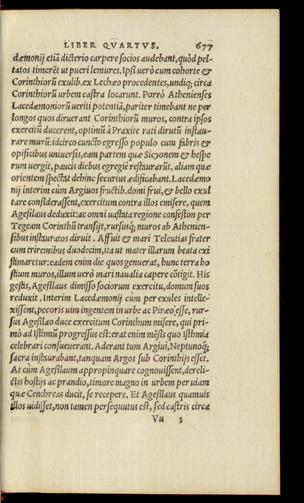 LIBER QVARTVS. 677
dæmonij etiã dicterio carpere socios audebant, quòd pel-
tatos timerẽt ut pueri lemures. Ipsi uerò cum cohorte &
Corinthiorũ exulib. ex Lechæo procedentes, undiq; circa
Corinthiorũ urbem castra locarunt. Porrò Athenienses
Lacedæmoniorũ ueriti potentiã, pariter timebant ne per
longos quos diruerant Corinthiorũ muros, contra ipsos
exercitũ ducerent, optimũ à Praxite rati dirutũ instau-
rare murũ: idcirco cuncto egresso populo cum fabris &
opificibus uniuersis, eam partem quæ Sicyonem & hespe
rum uergit, paucis diebus egregiè restaurarũt, aliam quæ
orientem spectat dehinc securius ædificabant. Lacedæmo
nij interim cùm Argiuos fructib. domi frui, & bello exul
tare considerassent, exercitum contra illos emisere, quem
Agesilaus deduxit: ac omni uastata regione confestim per
Tegeam Corinthũ transijt, rursusq; muros ab Athenien-
sibus instauratos diruit. Affuit & mari Teleutias frater
cum triremibus duodecim, ita ut mater illarum beata exi
stimaretur: eadem enim die quos genuerat, hunc terra ho
stium muros, illum uerò mari naualia capere cõtigit. His
gestis, Agesilaus dimisso sociorum exercitu, domum suos
reduxit. Interim Lacedæmonij cùm per exules intelle-
xissent, pecoris uim ingentem in urbe ac Piræo esse, rur-
sus Agesilao duce exercitum Corinthum misere, qui pri-
mò ad Isthmũ progressus est: erat enim mẽsis quo Isthmia
celebrari consueuerant. Aderant tum Argiui, Neptunoq;
sacra instaurabant, tanquam Argos sub Corinthijs esset.
At cùm Agesilaum appropinquare cognouissent, dereli-
ctis hostijs ac prandio, timore magno in urbem per uiam
quæ Cenchreas ducit, se recepere. Et Agesilaus quamuis
illos uidisset, non tamen persequutus est, sed castris circa
Vu 3